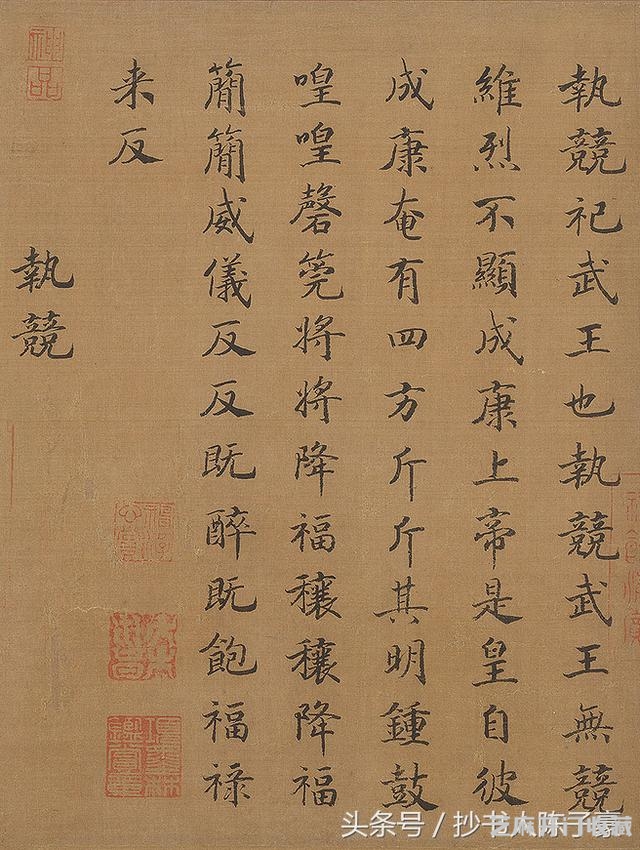 執競祀武王也執競武王無競
維烈不顯成康上帝是皇自彼
成康奄有四方斤斤其明鍾鼓
喤喤磬筦將將降福穰穰降福
簡簡威儀反反既醉既飽福禄
来反
執競
神品
头条号／抄书人陈子豪